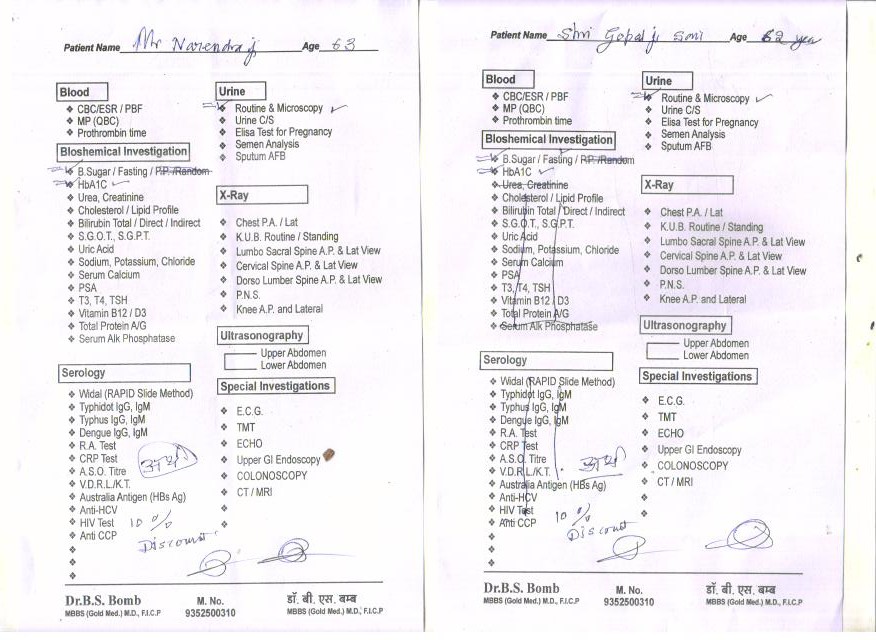 Patient Name Mr Narendra ji Age 63
Blood
❖ CBC/ESR / PBF
❖ MP (QBC)
❖ Prothrombin time
Bioshemical Investigation
❖ B.Sugar / Fasting / P.P. /Random
❖ HbA1C
❖ Urea, Creatinine
❖ Cholesterol / Lipid Profile
❖ Bilirubin Total / Direct / Indirect
❖ S.G.O.T., S.G.P.T.
❖ Uric Acid
❖ Sodium, Potassium, Chloride
❖ Serum Calcium
❖ PSA
❖ T3, T4, TSH
❖ Vitamin B12 / D3
❖ Total Protein A/G
❖ Serum Alk Phosphatase
Serology
❖ Widal (RAPID Slide Method)
❖ Typhidot IgG, IgM
❖ Typhus IgG, IgM
❖ Dengue IgG, IgM
❖ R.A. Test
❖ CRP Test
❖ A.S.O. Titre
❖ V.D.R.L./K.T.
❖ Australia Antigen (HBs Ag)
❖ Anti-HCV
❖ HIV Test
❖ Anti CCP
10 %
Discount
Urine
❖ Routine & Microscopy
❖ Urine C/S
❖ Elisa Test for Pregnancy
❖ Semen Analysis
Sputum AFB
X-Ray
❖ Chest P.A. / Lat
❖ K.U.B. Routine / Standing
❖ Lumbo Sacral Spine A.P. & Lat View
❖ Cervical Spine A.P. & Lat View
❖ Dorso Lumber Spine A.P. & Lat View
❖ P.N.S.
❖ Knee A.P. and Lateral
Ultrasonography
Upper Abdomen
Lower Abdomen
Special Investigations
❖ E.C.G.
❖ TMT
❖ ECHO
❖ Upper GI Endoscopy
❖ COLONOSCOPY
❖ CT / MRI
Dr.B.S. Bomb
MBBS (Gold Med.) M.D., F.I.C.P
M. No.
9352500310
डॉ. बी. एस. बम्ब
MBBS (Gold Med.) M.D., F.I.C.P
Patient Name Shri Gopal ji Soni Age 62 year
Blood
❖ CBC/ESR / PBF
❖ MP (QBC)
❖ Prothrombin time
Bioshemical Investigation
❖ B.Sugar / Fasting / P.P. /Random
❖ HbA1C
❖ Urea, Creatinine
❖ Cholesterol / Lipid Profile
❖ Bilirubin Total / Direct / Indirect
❖ S.G.O.T., S.G.P.T.
❖ Uric Acid
❖ Sodium, Potassium, Chloride
❖ Serum Calcium
❖ PSA
❖ T3, T4, TSH
❖ Vitamin B12 / D3
❖ Total Protein A/G
❖ Serum Alk Phosphatase
Serology
❖ Widal (RAPID Slide Method)
❖ Typhidot IgG, IgM
❖ Typhus IgG, IgM
❖ Dengue IgG, IgM
❖ R.A. Test
❖ CRP Test
❖ A.S.O. Titre
❖ V.D.R.L./K.T.
❖ Australia Antigen (HBs Ag)
❖ Anti-HCV
❖ HIV Test
❖ Anti CCP
10 %
Discount
Urine
❖ Routine & Microscopy
❖ Urine C/S
❖ Elisa Test for Pregnancy
❖ Semen Analysis
❖ Sputum AFB
X-Ray
❖ Chest P.A. / Lat
❖ K.U.B. Routine / Standing
❖ Lumbo Sacral Spine A.P. & Lat View
❖ Cervical Spine A.P. & Lat View
❖ Dorso Lumber Spine A.P. & Lat View
❖ P.N.S.
❖ Knee A.P. and Lateral
Ultrasonography
Upper Abdomen
Lower Abdomen
Special Investigations
❖ E.C.G.
❖ TMT
❖ ECHO
❖ Upper GI Endoscopy
❖ COLONOSCOPY
❖ CT / MRI
Dr.B.S. Bomb
MBBS (Gold Med.) M.D., F.I.C.P
M. No.
9352500310
डॉ. बी. एस. बम्ब
MBBS (Gold Med.) M.D., F.I.C.P